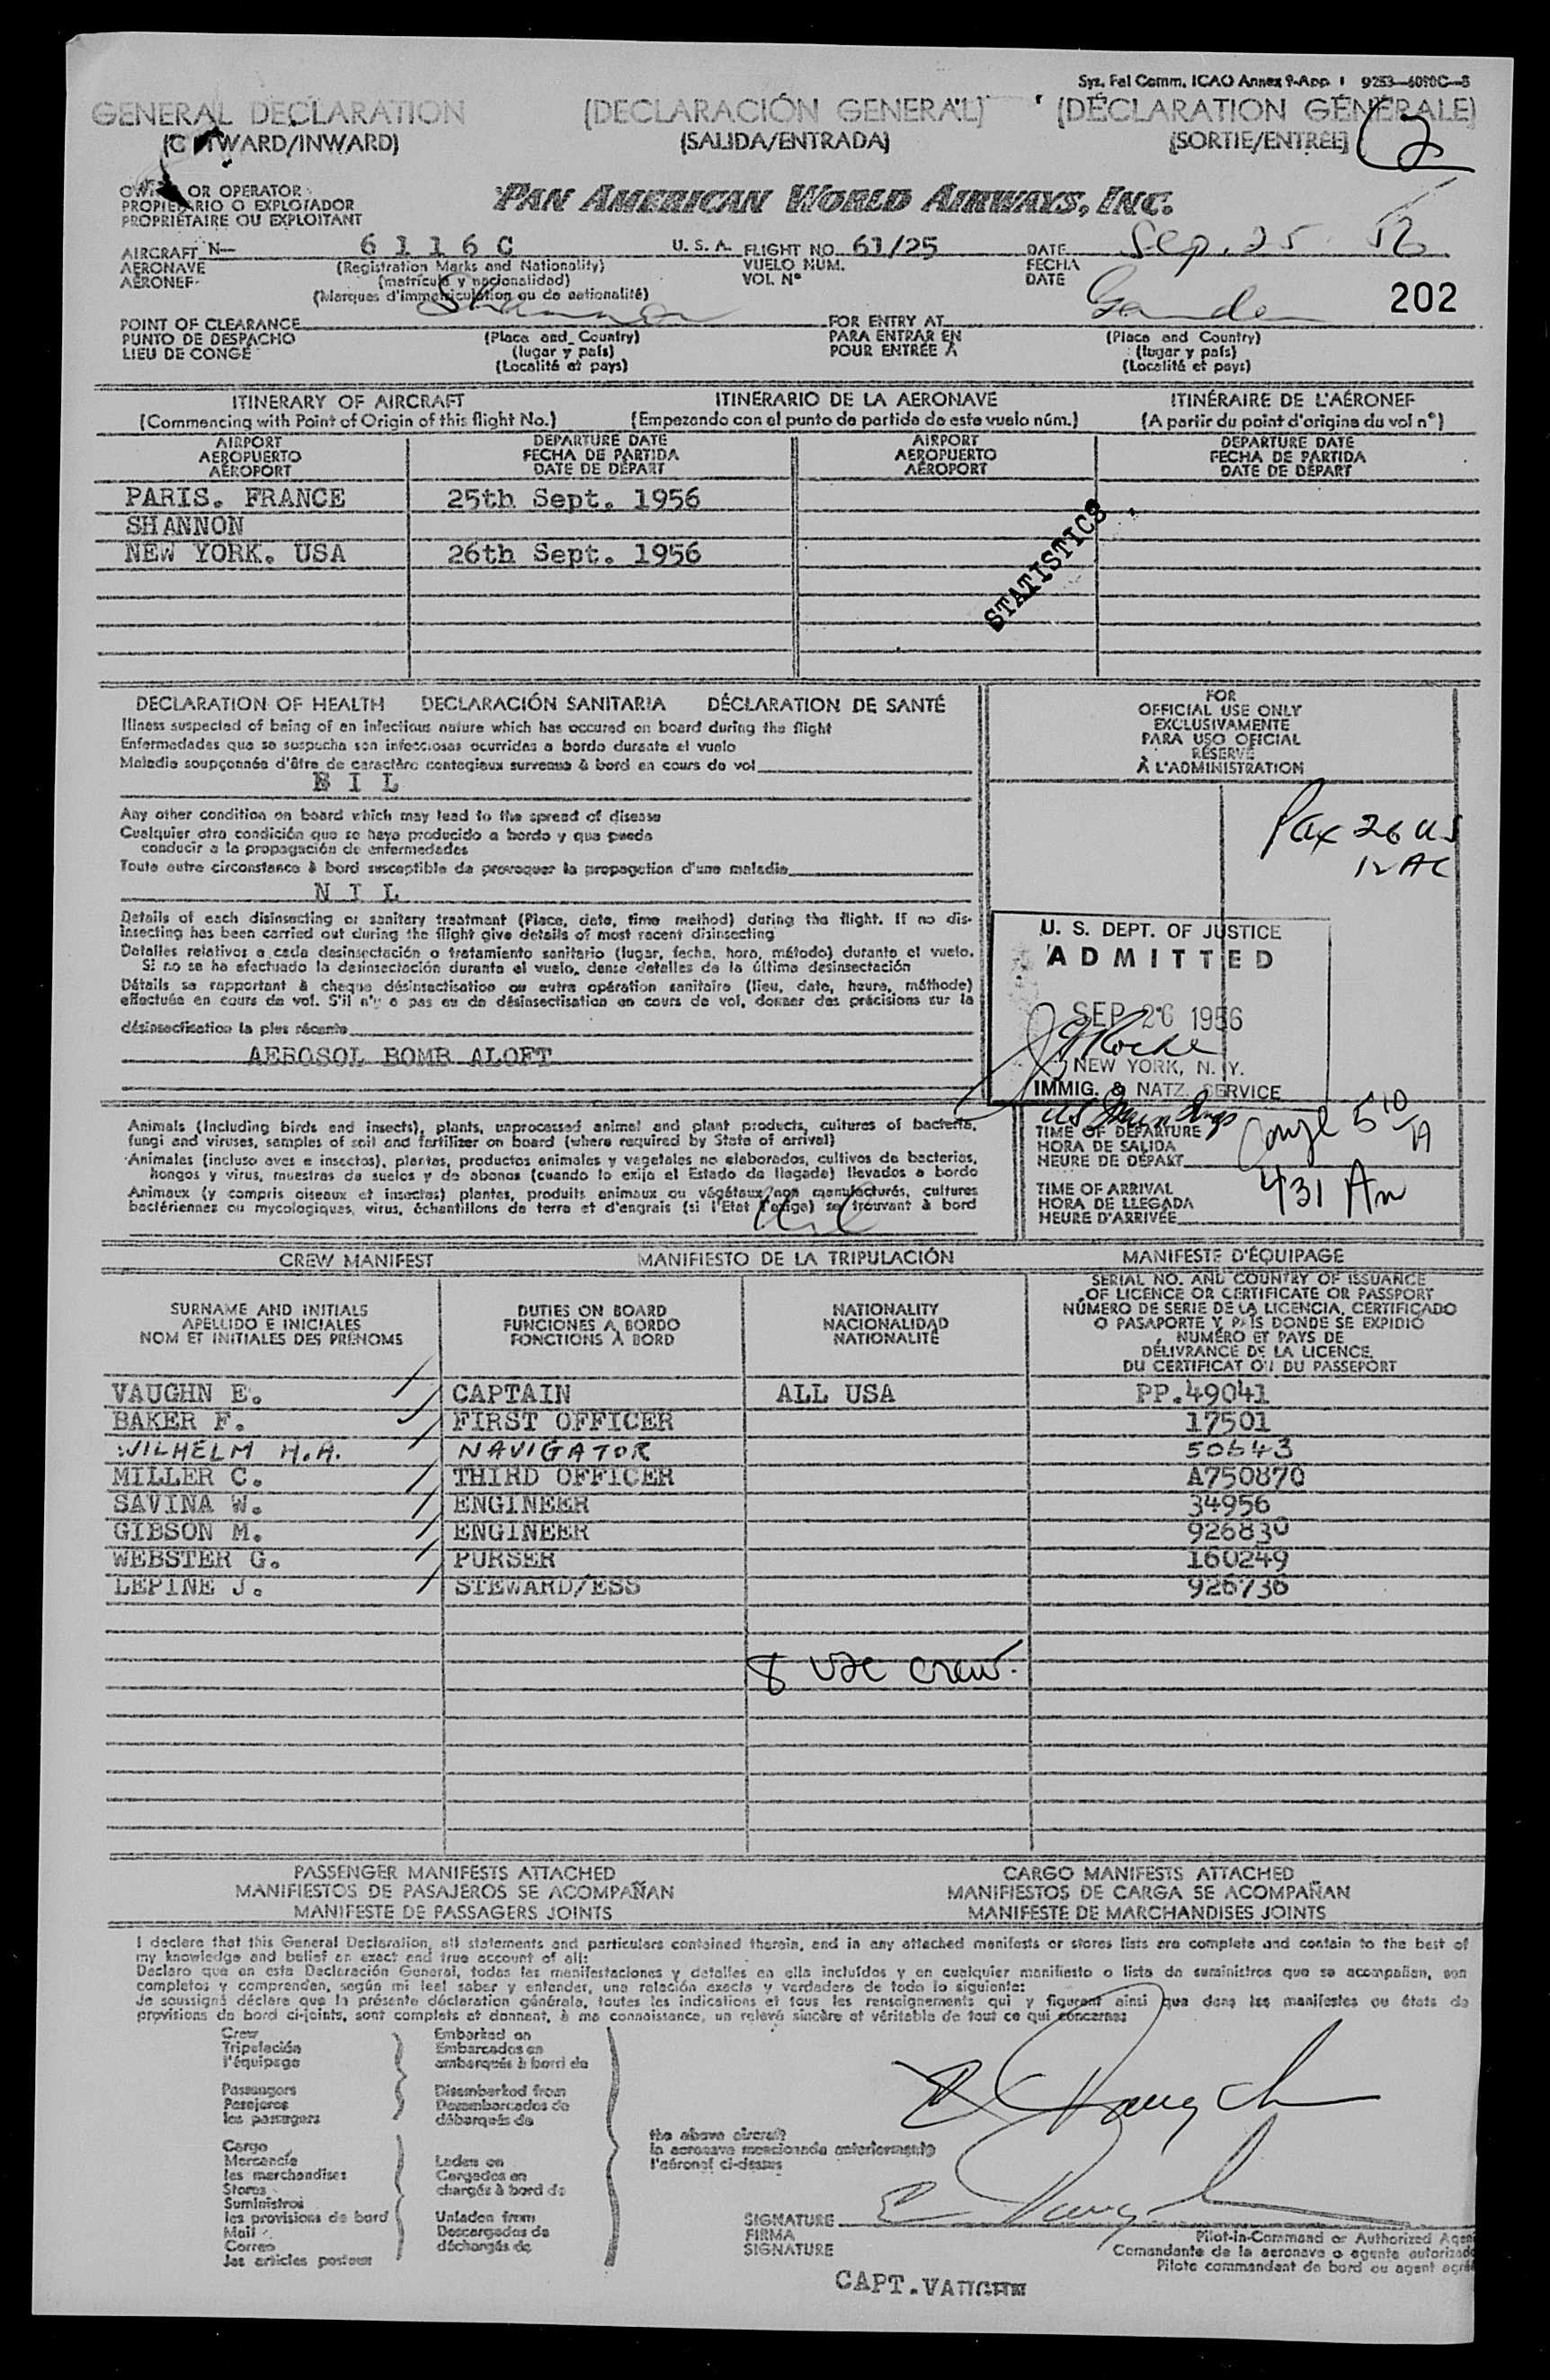 Sys. Fal Comm. ICAO Annex 9-App 1 9253-6090C-S
GENERAL DECLARATION (DECLARACIÓN GENERAL) (DÉCLARATION GÉNÉRALE)
WARD/INWARD) (SALIDA/ENTRADA) (SORTIE/ENTRÉE) 2
OR OPERATOR
PROPIETARIO O EXPLOTADOR PAN AMERICAN WORLD AIRWAYS, INC.
PROPRIÉTAIRE OU EXPLOITANT
AIRCRAFT N— 6116C U. S. A. FLIGHT NO. 61/25 DATE Sep. 25 56
AERONAVE (Registration Marks and Nationality) VUELO NUM. FECHA
AÉRONEF (matrícula y nacionalidad) VOL N° DATE
(Marques d'immatriculation ou de nationalité) 202
POINT OF CLEARANCE Shannon FOR ENTRY AT Gander
PUNTO DE DESPACHO (Place and Country) PARA ENTRAR EN (Place and Country)
LIEU DE CONGÉ (lugar y país) POUR ENTRÉE À (lugar y país)
(Localité et pays) (Localité et pays)
ITINERARY OF AIRCRAFT ITINERARIO DE LA AERONAVE ITINÉRAIRE DE L'AÉRONEF
(Commencing with Point of Origin of this flight No.) (Empezando con el punto de partida de este vuelo núm.) (A partir du point d'origine du vol n°)
AIRPORT DEPARTURE DATE AIRPORT DEPARTURE DATE
AEROPUERTO FECHA DE PARTIDA AEROPUERTO FECHA DE PARTIDA
AÉROPORT DATE DE DÉPART AÉROPORT DATE DE DÉPART
PARIS. FRANCE 25th Sept. 1956
SHANNON
NEW YORK. USA 26th Sept. 1956
STATISTICS
DECLARATION OF HEALTH DECLARACIÓN SANITARIA DÉCLARATION DE SANTÉ
Illness suspected of being of an infectious nature which has occured on board during the flight
Enfermedades que se sospecha son infecciosas ocurridas a bordo durante el vuelo
Maladie soupçonnée d'être de caractère contagieux survenue à bord en cours de vol
N I L
Any other condition on board which may lead to the spread of disease
Cualquier otra condición que se haya producido a bordo y que pueda
conducir a la propagación de enfermedades
Toute autre circonstance à bord susceptible de provoquer la propagation d'une maladie
N I L
Details of each disinsecting or sanitary treatment (Place, date, time method) during the flight. If no dis-
insecting has been carried out during the flight give details of most recent disinsecting
Detalles relativos a cada desinsectación o tratamiento sanitario (lugar, fecha, hora, método) durante el vuelo.
Si no se ha efectuado la desinsectación durante el vuelo, dense detalles de la última desinsectación
Détails se rapportant à chaque désinsectisation ou autre opération sanitaire (lieu, date, heure, méthode)
effectuée en cours de vol. S'il n'y a pas eu de désinsectisation en cours de vol, donner des précisions sur la
désinsectisation la plus récente
AEROSOL BOMB ALOFT
FOR
OFFICIAL USE ONLY
EXCLUSIVAMENTE
PARA USO OFICIAL
RÉSERVÉ
À L'ADMINISTRATION
Pax 26 US
12 AC
U. S. DEPT. OF JUSTICE
ADMITTED
SEP 26 1956
NEW YORK, N. Y.
IMMIG. & NATZ. SERVICE
Animals (Including birds and insects), plants, unprocessed animal and plant products, cultures of bacteria,
fungi and viruses, samples of soil and fertilizer on board (where required by State of arrival)
Animales (incluso aves e insectos), plantas, productos animales y vegetales no elaborados, cultivos de bacterias,
hongos y virus, muestras de suelos y de abonos (cuando lo exija el Estado de llegada) llevados a bordo
Animaux (y compris oiseaux et insectes) plantes, produits animaux ou végétaux non manufacturés, cultures
bactériennes ou mycologiques, virus, échantillons de terre et d'engrais (si l'Etat l'exige) se trouvant à bord
Nil
TIME OF DEPARTURE
HORA DE SALIDA
HEURE DE DÉPART 5 10 A
TIME OF ARRIVAL
HORA DE LLEGADA 431 Am
HEURE D'ARRIVÉE
CREW MANIFEST MANIFIESTO DE LA TRIPULACIÓN MANIFESTE D'ÉQUIPAGE
SURNAME AND INITIALS
APELLIDO E INICIALES
NOM ET INITIALES DES PRÉNOMS
DUTIES ON BOARD
FUNCIONES A BORDO
FONCTIONS À BORD
NATIONALITY
NACIONALIDAD
NATIONALITÉ
SERIAL NO. AND COUNTRY OF ISSUANCE
OF LICENCE OR CERTIFICATE OR PASSPORT
NÚMERO DE SERIE DE LA LICENCIA, CERTIFICADO
O PASAPORTE Y PAIS DONDE SE EXPIDIÓ
NUMÉRO ET PAYS DE
DÉLIVRANCE DE LA LICENCE,
DU CERTIFICAT OU DU PASSEPORT
VAUGHN E. CAPTAIN ALL USA PP.49041
BAKER F. FIRST OFFICER 17501
WILHELM H.A. NAVIGATOR 50643
MILLER C. THIRD OFFICER A750870
SAVINA W. ENGINEER 34956
GIBSON M. ENGINEER 926830
WEBSTER G. PURSER 160249
LEPINE J. STEWARD/ESS 926736
8 USC crew.
PASSENGER MANIFESTS ATTACHED CARGO MANIFESTS ATTACHED
MANIFIESTOS DE PASAJEROS SE ACOMPAÑAN MANIFIESTOS DE CARGA SE ACOMPAÑAN
MANIFESTE DE PASSAGERS JOINTS MANIFESTE DE MARCHANDISES JOINTS
I declare that this General Declaration, all statements and particulars contained therein, and in any attached manifests or stores lists are complete and contain to the best of
my knowledge and belief an exact and true account of all:
Declaro que en esta Declaración General, todas las manifestaciones y detalles en ella incluídos y en cualquier manifiesto o lista de suministros que se acompañen, son
completos y comprenden, según mi leal saber y entender, una relación exacta y verdadera de todo lo siguiente:
Je soussigné déclare que la présente déclaration générale, toutes les indications et tous les renseignements qui y figurent ainsi que dans les manifestes ou états de
provisions de bord ci-joints, sont complets et donnent, à ma connaissance, un relevé sincère et véritable de tout ce qui concerne:
Crew Embarked on
Tripulación Embarcados en
l'équipage embarqués à bord de
Passengers Disembarked from
Pasajeros Desembarcados de
les passagers débarqués de
the above aircraft
la aeronave mencionada anteriormente
l'aéronef ci-dessus
Cargo
Mercancía Laden on
les marchandises Cargados en
Stores chargés à bord de
Suministros
les provisions de bord Unladen from
Mail Descargados de
Correo déchargés de
les articles postaux
E Vaughn
SIGNATURE E Vaughn
FIRMA Pilot-in-Command or Authorized Agen
SIGNATURE Comandante de la aeronave o agente autorizado
Pilote commandant de bord ou agent agréé
CAPT.VAUGHN